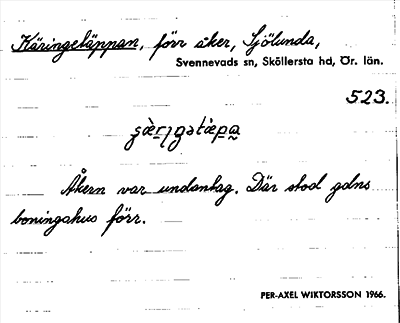 Käringetäppan, förr åker, Sjölunda,
Svennevads sn, Sköllersta hd, Ör. län.
523.
Åkern var undantag. Där stod gdns
boningahus förr.
PER-AXEL WIKTORSSON 1966.